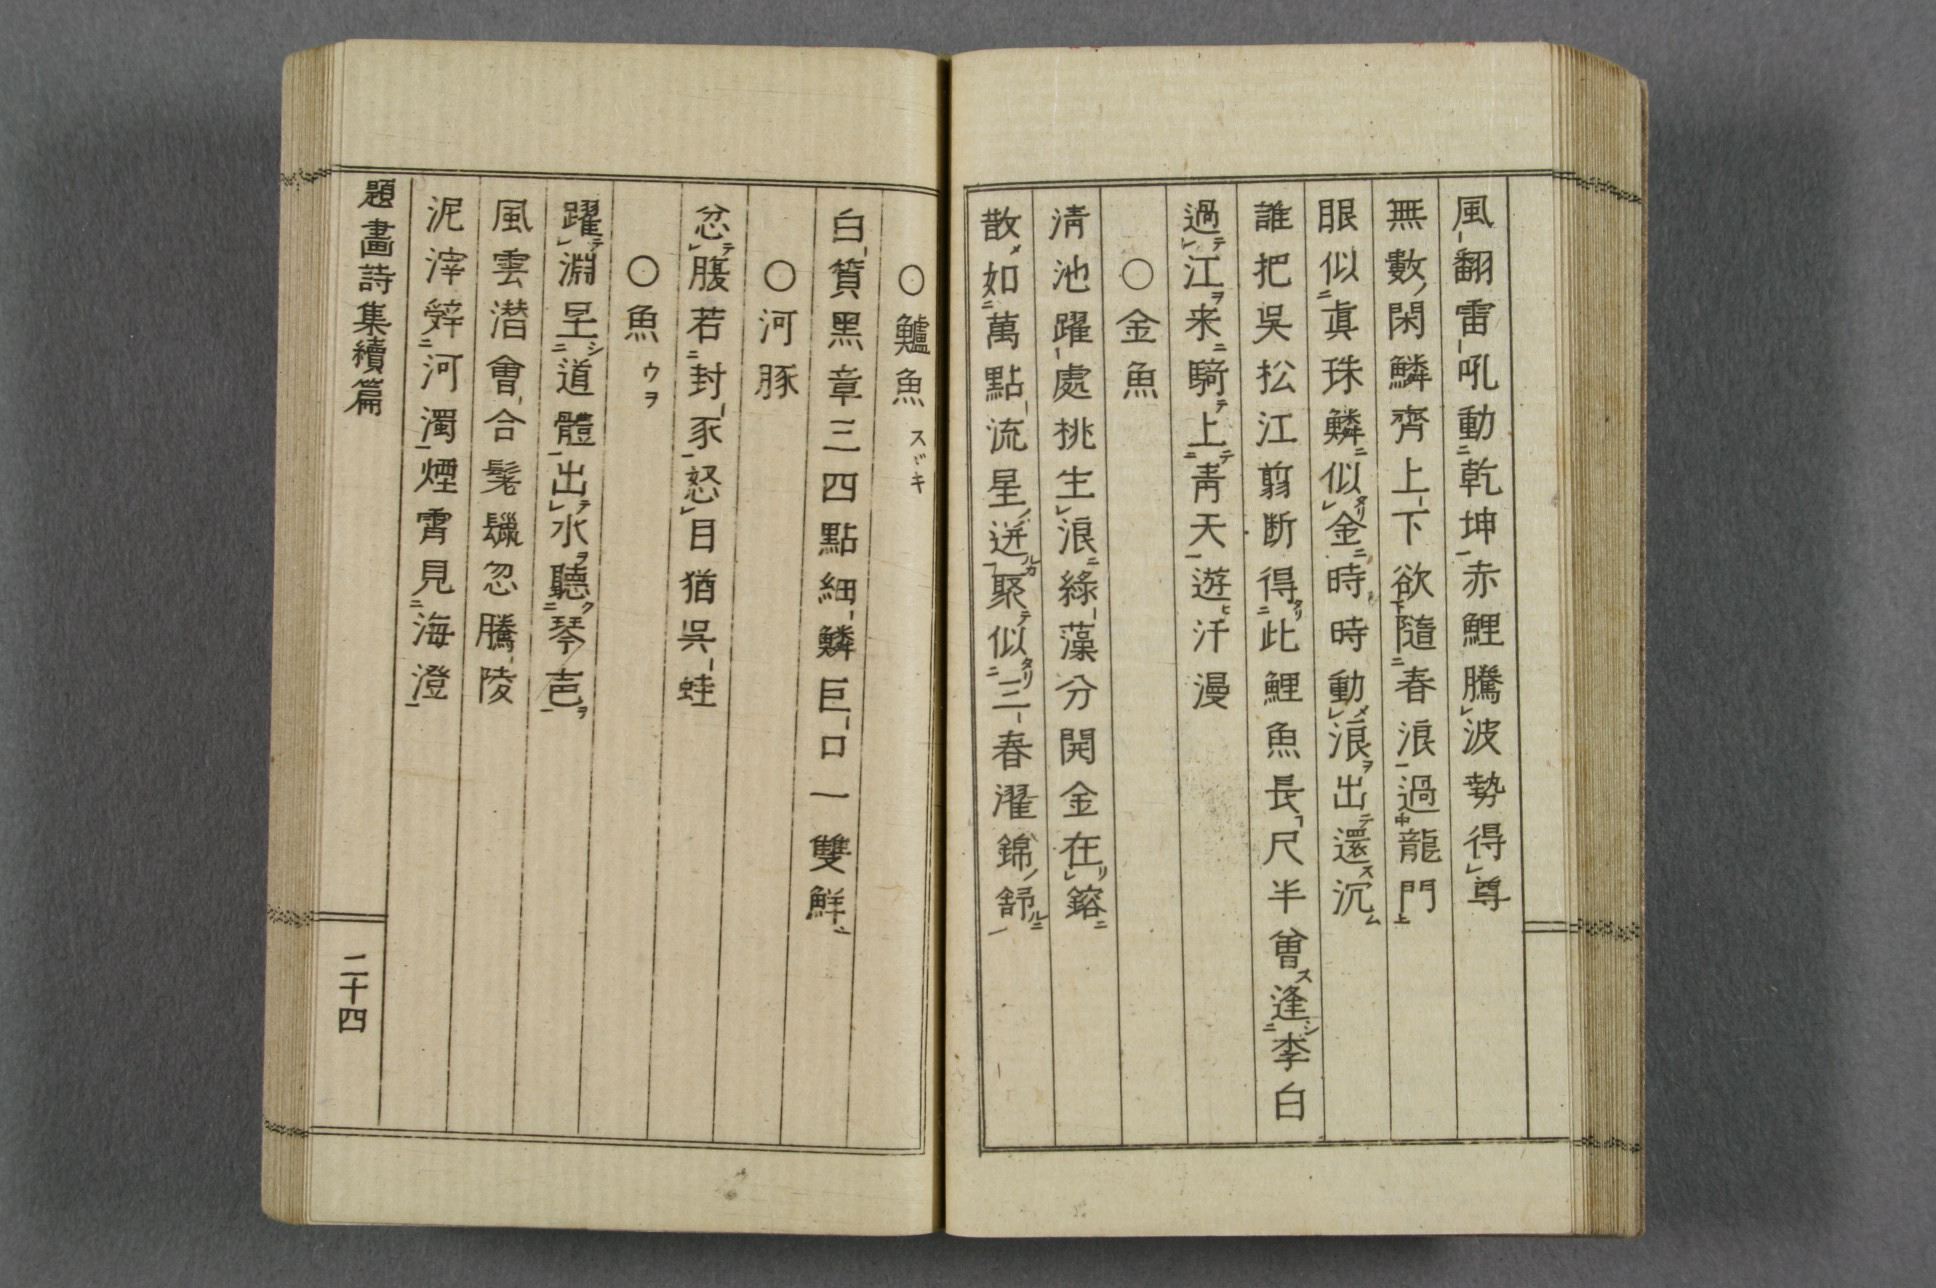 風翻雷吼動乾坤赤鯉騰波勢得尊
無數閑鱗齊上下欲隨春浪過龍門
眼似眞珠鱗似金時時動浪出還沉
誰把吳松江剪断得此鯉魚長尺半曾逢李白
過江来騎上靑天遊汗漫
〇金魚
淸池躍處挑生浪綠藻分開金在鎔
散如萬點流星迸聚似三春濯錦舒
〇鱸魚 スヾキ
白質黑章三四點細鱗巨口一雙鮮
〇河豚
忿腹若封豕怒目猶吳蛙
〇魚 ウヲ
躍淵呈道體出水聽琴声
風雲潜會合髦鬣忽騰陵
泥滓辤河濁煙霄見海澄
題畵詩集續篇
二十四